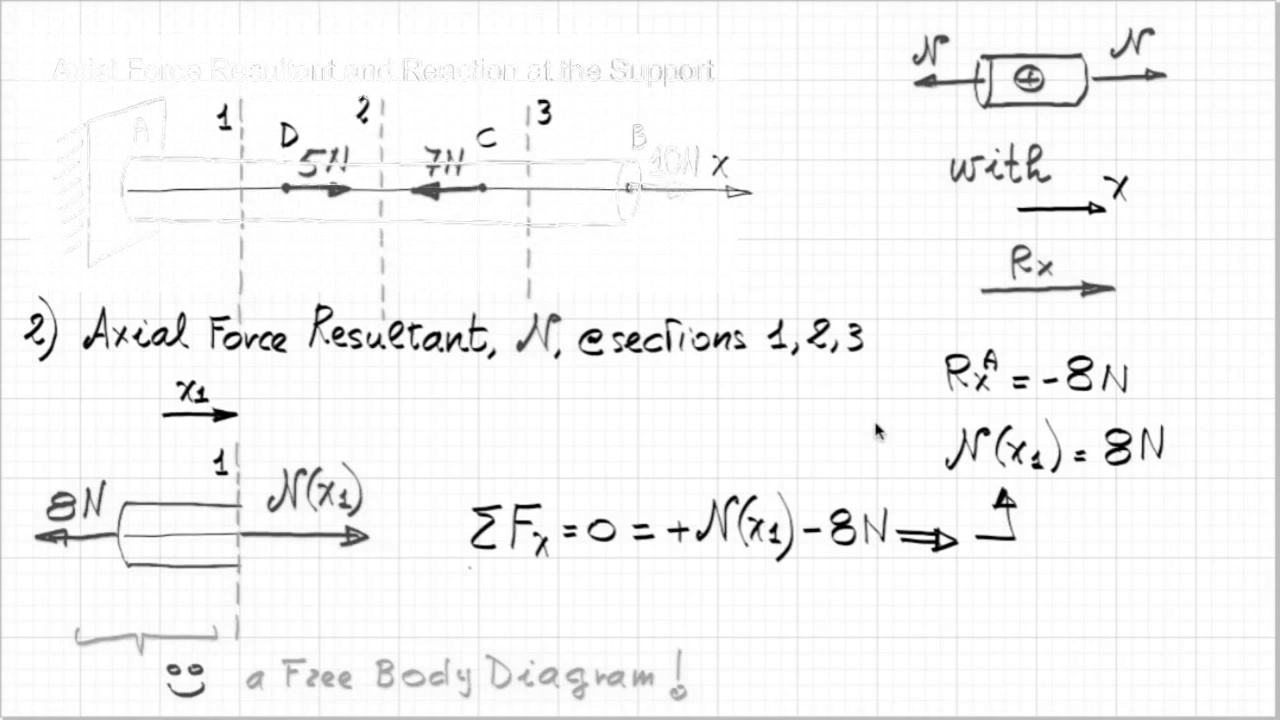 Axial Force Resultant and Reaction at the Support
N N
1 2 3
A D C B
5N 7N 10N x
with
x
Rx
2) Axial Force Resultant, N, @sections 1,2,3
x1
RxA = -8N
N(x1) = 8N
1
8N N(x1)
ΣFx = 0 = +N(x1) - 8N ⇒
a Free Body Diagram!